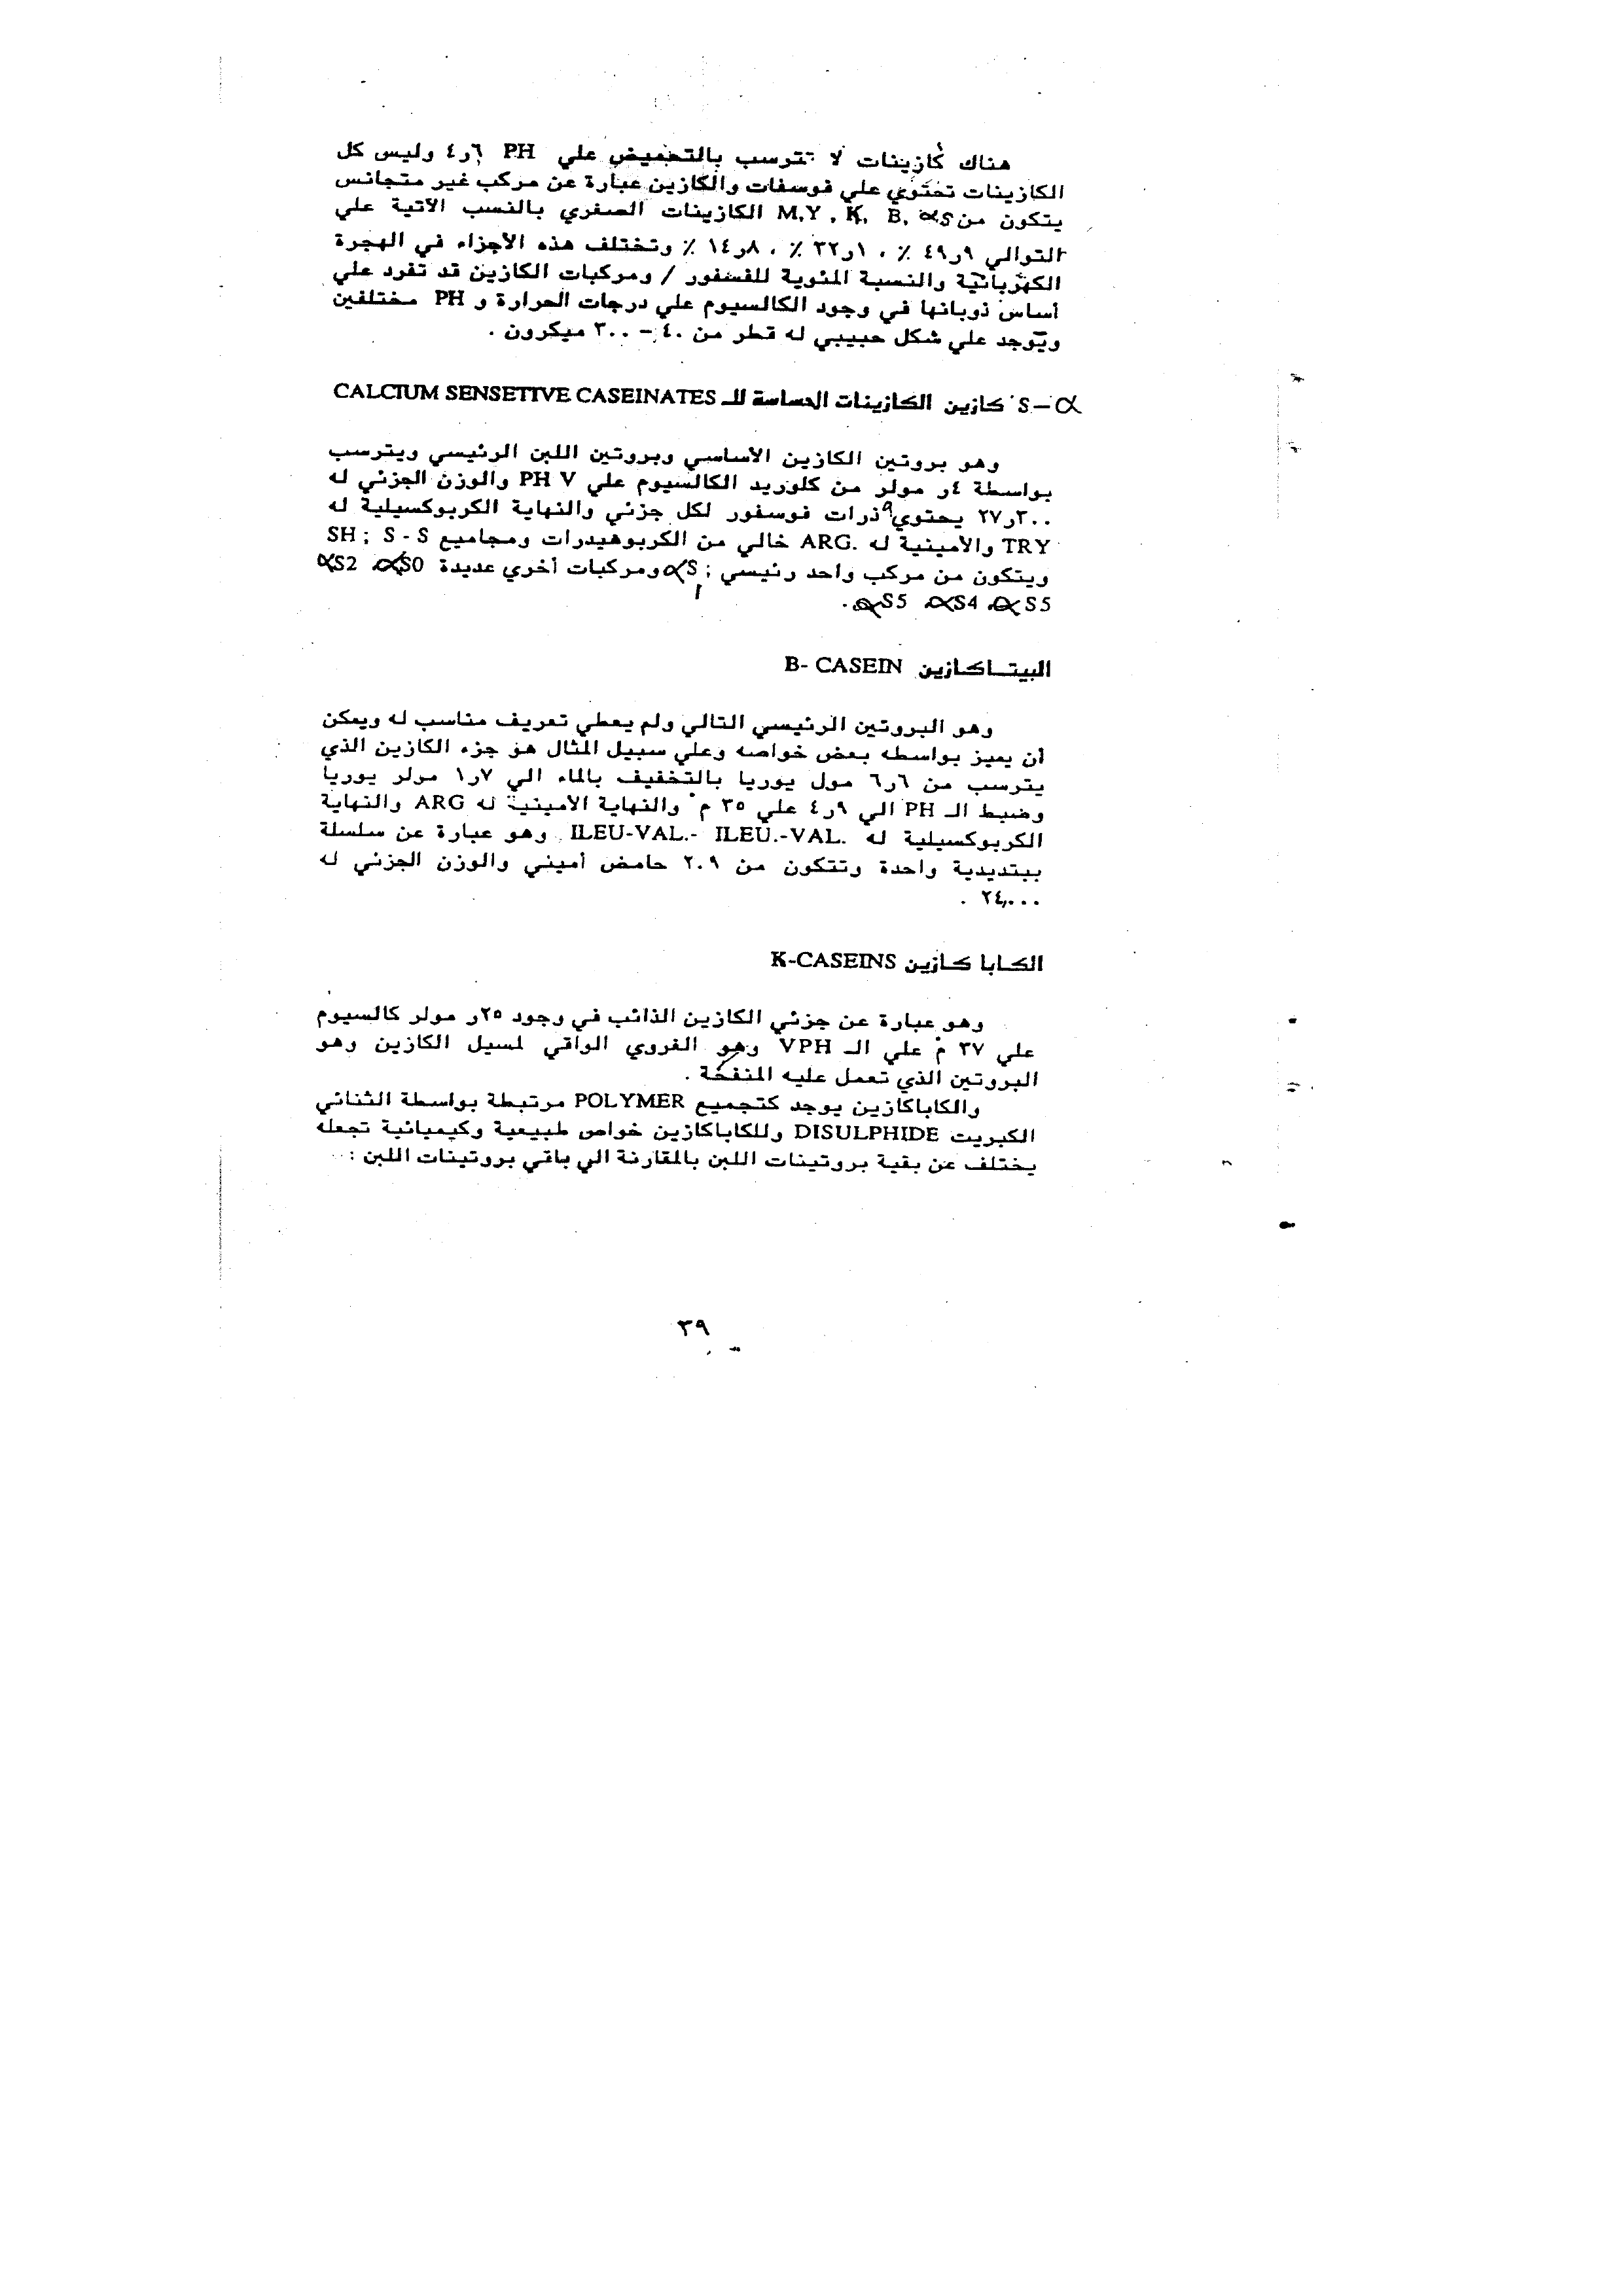 هناك كازينات لا تترسب بالتحميض علي PH ٦ر٤ وليس كل
الكازينات تحتوي علي فوسفات والكازين عبارة عن مركب غير متجانس
يتكون من M,Y , K, B, αS الكازينات الصغري بالنسب الاتية علي
التوالي ٩ر٤٩ ٪ ، ١ر٢٢ ٪ ، ٨ر١٤ ٪ وتختلف هذه الأجزاء في الهجرة
الكهربائية والنسبة المئوية للفسفور / ومركبات الكازين قد تفرد علي
أساس ذوبانها في وجود الكالسيوم علي درجات الحرارة و PH مختلفين
ويوجد علي شكل حبيبي له قطر من ٤٠ – ٣٠٠ ميكرون .
α – S كازين الكازينات الحساسة للـ CALCIUM SENSETIVE CASEINATES
وهو بروتين الكازين الاساسي وبروتين اللبن الرئيسي ويترسب
بواسطة ٤ر مولر من كلوريد الكالسيوم علي PH ٧ والوزن الجزئي له
٣٠٠ر٢٧ يحتوي ٩ ذرات فوسفور لكل جزئي والنهاية الكربوكسيلية له
TRY والامينية له ARG. خالي من الكربوهيدرات ومجاميع SH ; S - S
ويتكون من مركب واحد رئيسي ; αS١ ومركبات أخري عديدة αS0 ، αS2
αS5 ، αS4 ، αS5 .
البيتـاكـازين B- CASEIN
وهو البروتين الرئيسي التالي ولم يعطي تعريف مناسب له ويمكن
أن يميز بواسطه بعض خواصه وعلي سبيل المثال هو جزء الكازين الذي
يترسب من ٦ر٦ مول يوريا بالتخفيف بالماء الي ٧ر١ مولر يوريا
وضبط الـ PH الي ٩ر٤ علي ٣٥ م° والنهاية الامينية له ARG والنهاية
الكربوكسيلية له ILEU-VAL.- ILEU.-VAL. وهو عبارة عن سلسلة
ببتديدية واحدة وتتكون من ٢٠٩ حامض أميني والوزن الجزئي له
٢٤,٠٠٠ .
الكـابا كـازين K-CASEINS
وهو عبارة عن جزئي الكازين الذائب في وجود ٢٥ر مولر كالسيوم
علي ٣٧ م° علي الـ ٧PH وهو الغروي الواقي لمسيل الكازين وهو
البروتين الذي تعمل عليه المنفحة .
والكاباكازين يوجد كتجميع POLYMER مرتبطة بواسطة الثنائي
الكبريت DISULPHIDE وللكاباكازين خواص طبيعية وكيميائية تجعله
يختلف عن بقية بروتينات اللبن بالمقارنة الي باقي بروتينات اللبن :
٣٩